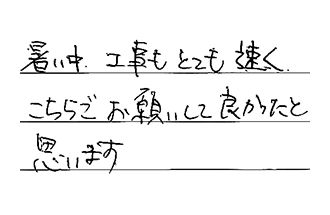 暑い中、工事もとても速く、
こちらでお願いして良かったと
思います